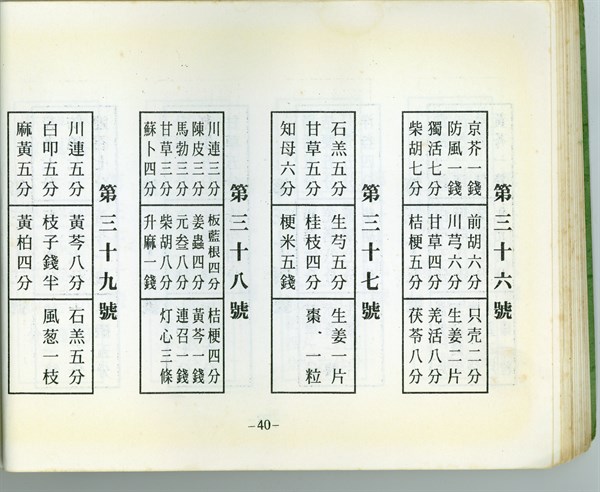 第三十六號
京芥一錢 前胡六分 只壳二分
防風一錢 川芎六分 生姜二片
獨活七分 甘草四分 羌活八分
柴胡七分 桔梗五分 茯苓八分
第三十七號
石羔五分 生芍五分 生姜一片
甘草五分 桂枝四分 棗、一粒
知母六分 梗米五錢
第三十八號
川連三分 板藍根四分 桔梗四分
陳皮三分 姜蟲四分 黃芩一錢
馬勃三分 元叁八分 連召一錢
甘草三分 柴胡八分 灯心三條
蘇卜四分 升麻一錢
第三十九號
川連五分 黃芩八分 石羔五分
白叩五分 枝子錢半 風葱一枝
麻黃五分 黃柏四分
-40-